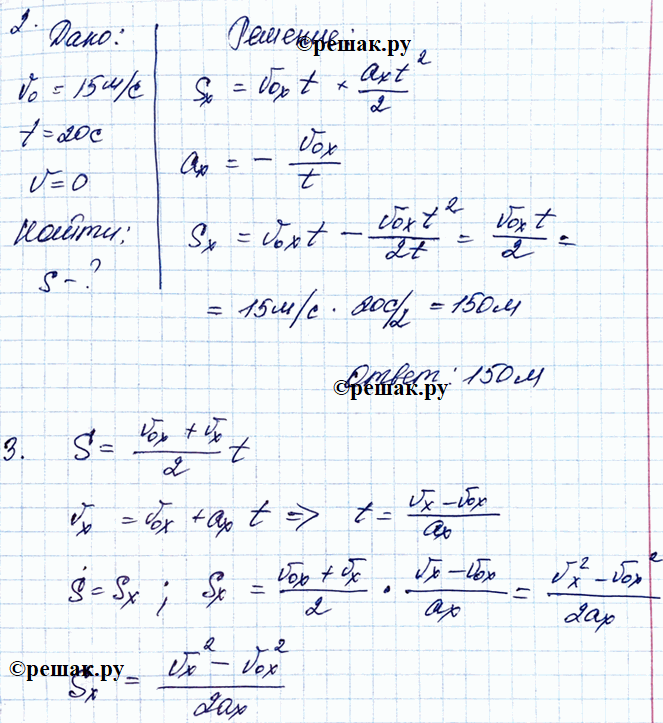 2. Дано:
v₀ = 15м/с
t = 20с
v = 0
Найти:
S - ?
Решение:
©решак.ру
Sₓ = v₀ₓt + aₓt²/2
aₓ = - v₀ₓ/t
Sₓ = v₀ₓt - v₀ₓt²/2t = v₀ₓt/2 =
= 15м/с · 20с/2 = 150м
Ответ: 150м
©решак.ру
3. S = (v₀ₓ + vₓ)/2 t
vₓ = v₀ₓ + aₓ t => t = (vₓ - v₀ₓ)/aₓ
S = Sₓ ; Sₓ = (v₀ₓ + vₓ)/2 · (vₓ - v₀ₓ)/aₓ = (vₓ² - v₀ₓ²)/2aₓ
©решак.ру
Sₓ = (vₓ² - v₀ₓ²)/2aₓ